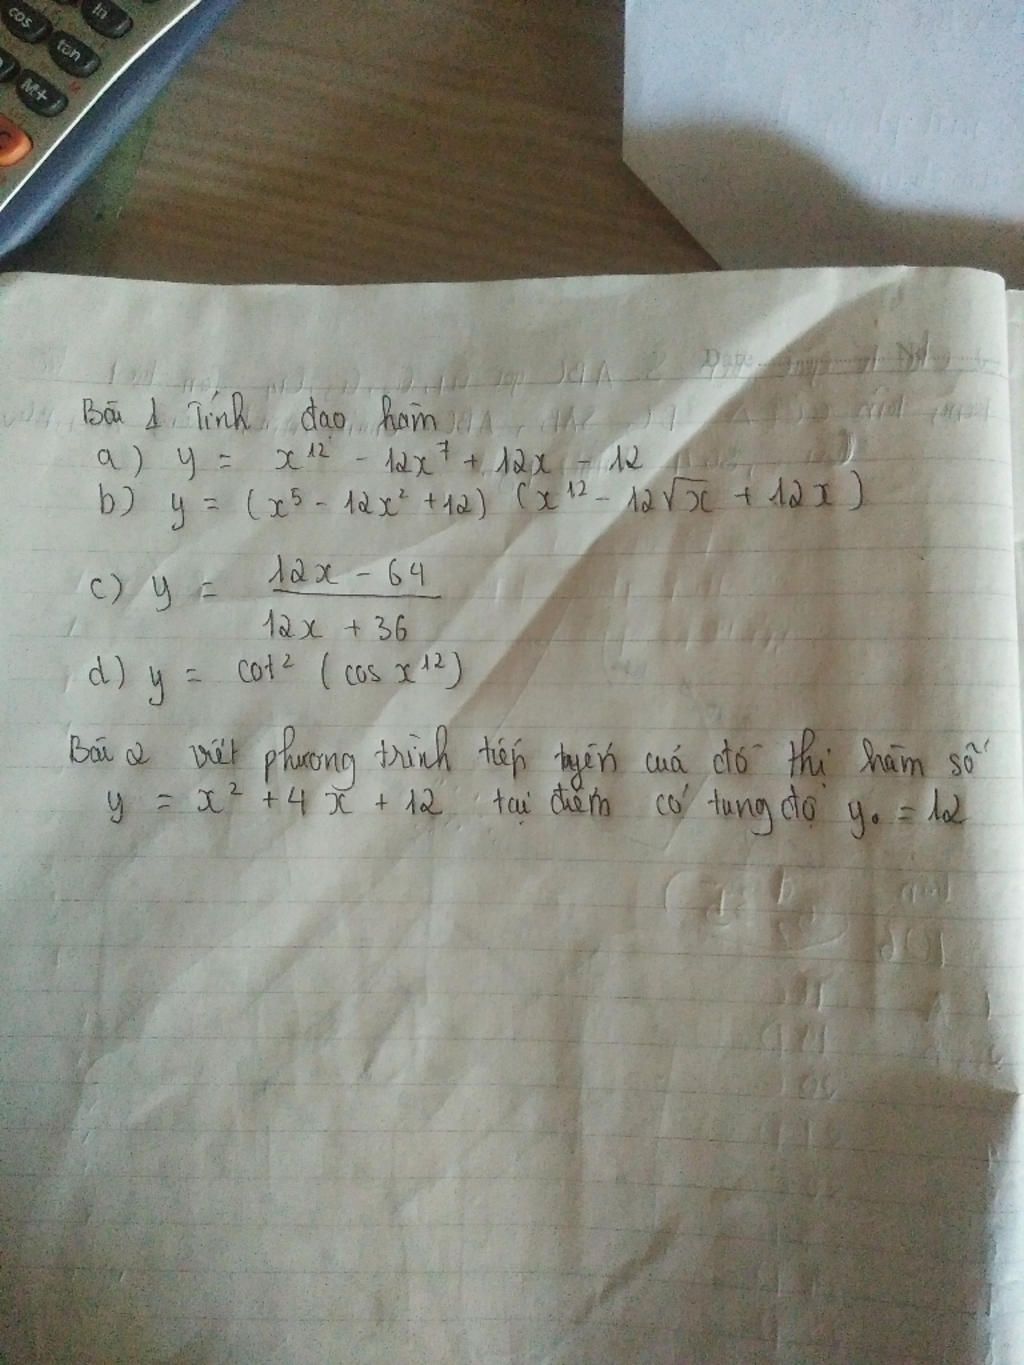 cos
ln
tan
M+
Bài 1 Tính đạo hàm
a) y = x¹² - 12x⁷ + 12x - 12
b) y = (x⁵ - 12x² + 12) (x¹² - 12√x + 12x)
c) y = (12x - 64)/(12x + 36)
d) y = cot² (cos x¹²)
Bài 2 viết phương trình tiếp tuyến cuả đồ thị hàm số
y = x² + 4x + 12 tại điểm có tung độ y₀ = 12